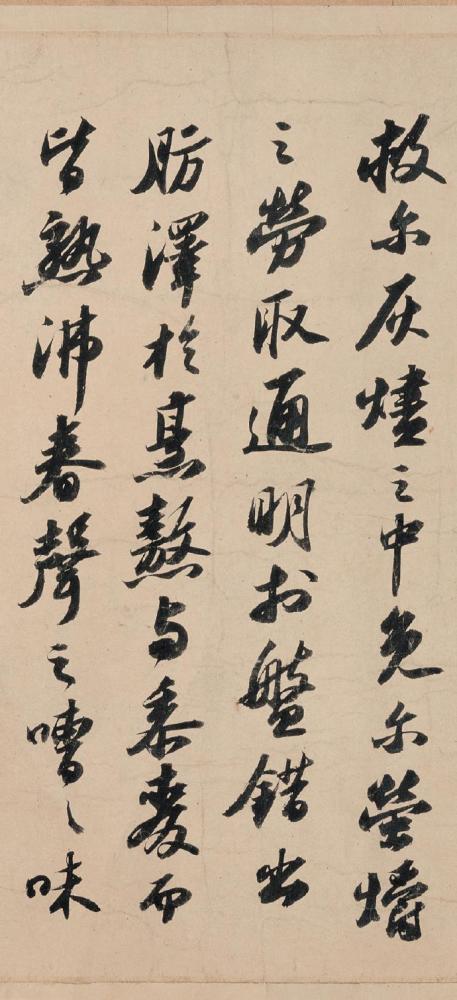 救尔灰燼之中免尔螢爝
之勞取通明於盤錯出
肪澤於烹熬与黍麥而
皆熟沸舂聲之嘈〻味